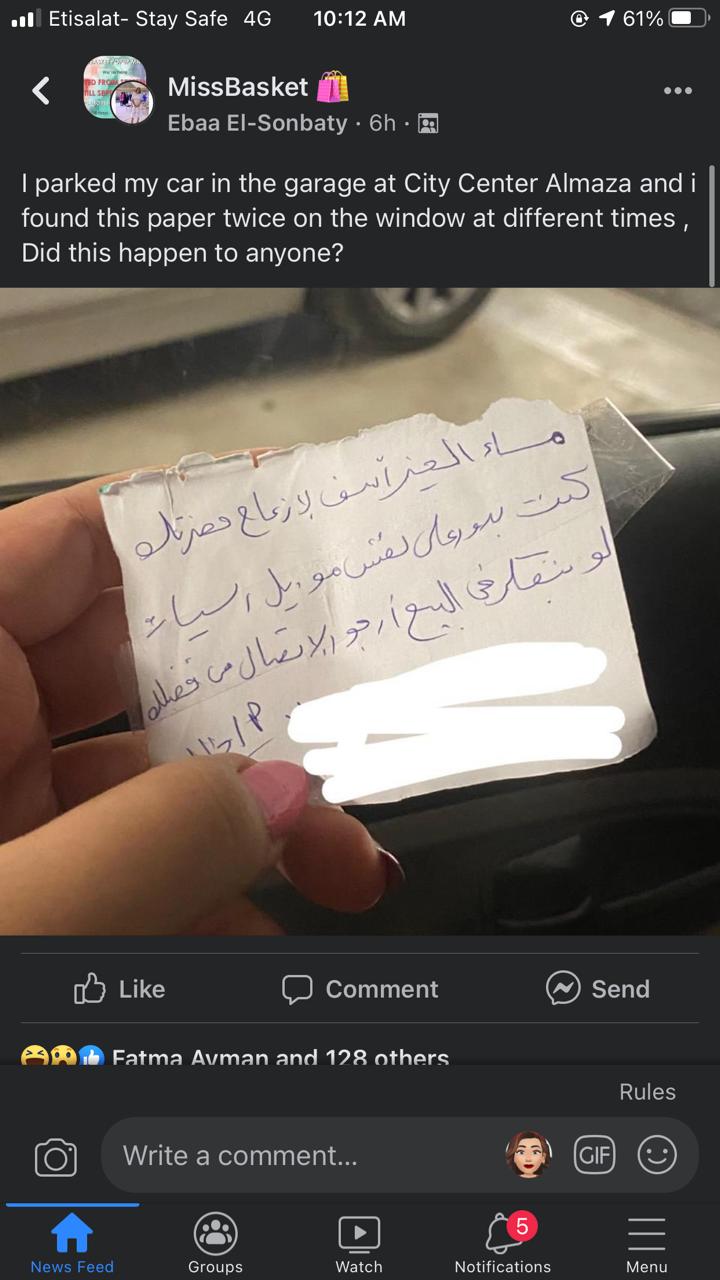 Etisalat- Stay Safe 4G 10:12 AM 61%
MissBasket
Ebaa El-Sonbaty · 6h ·
I parked my car in the garage at City Center Almaza and i
found this paper twice on the window at different times ,
Did this happen to anyone?
مساء الخير آسف لإزعاج حضرتك
كنت بدور على نفس موديل السيارة
لو بتفكر في البيع أرجو الاتصال من فضلك
Like Comment Send
Fatma Ayman and 128 others
Rules
Write a comment...
GIF
5
News Feed Groups Watch Notifications Menu